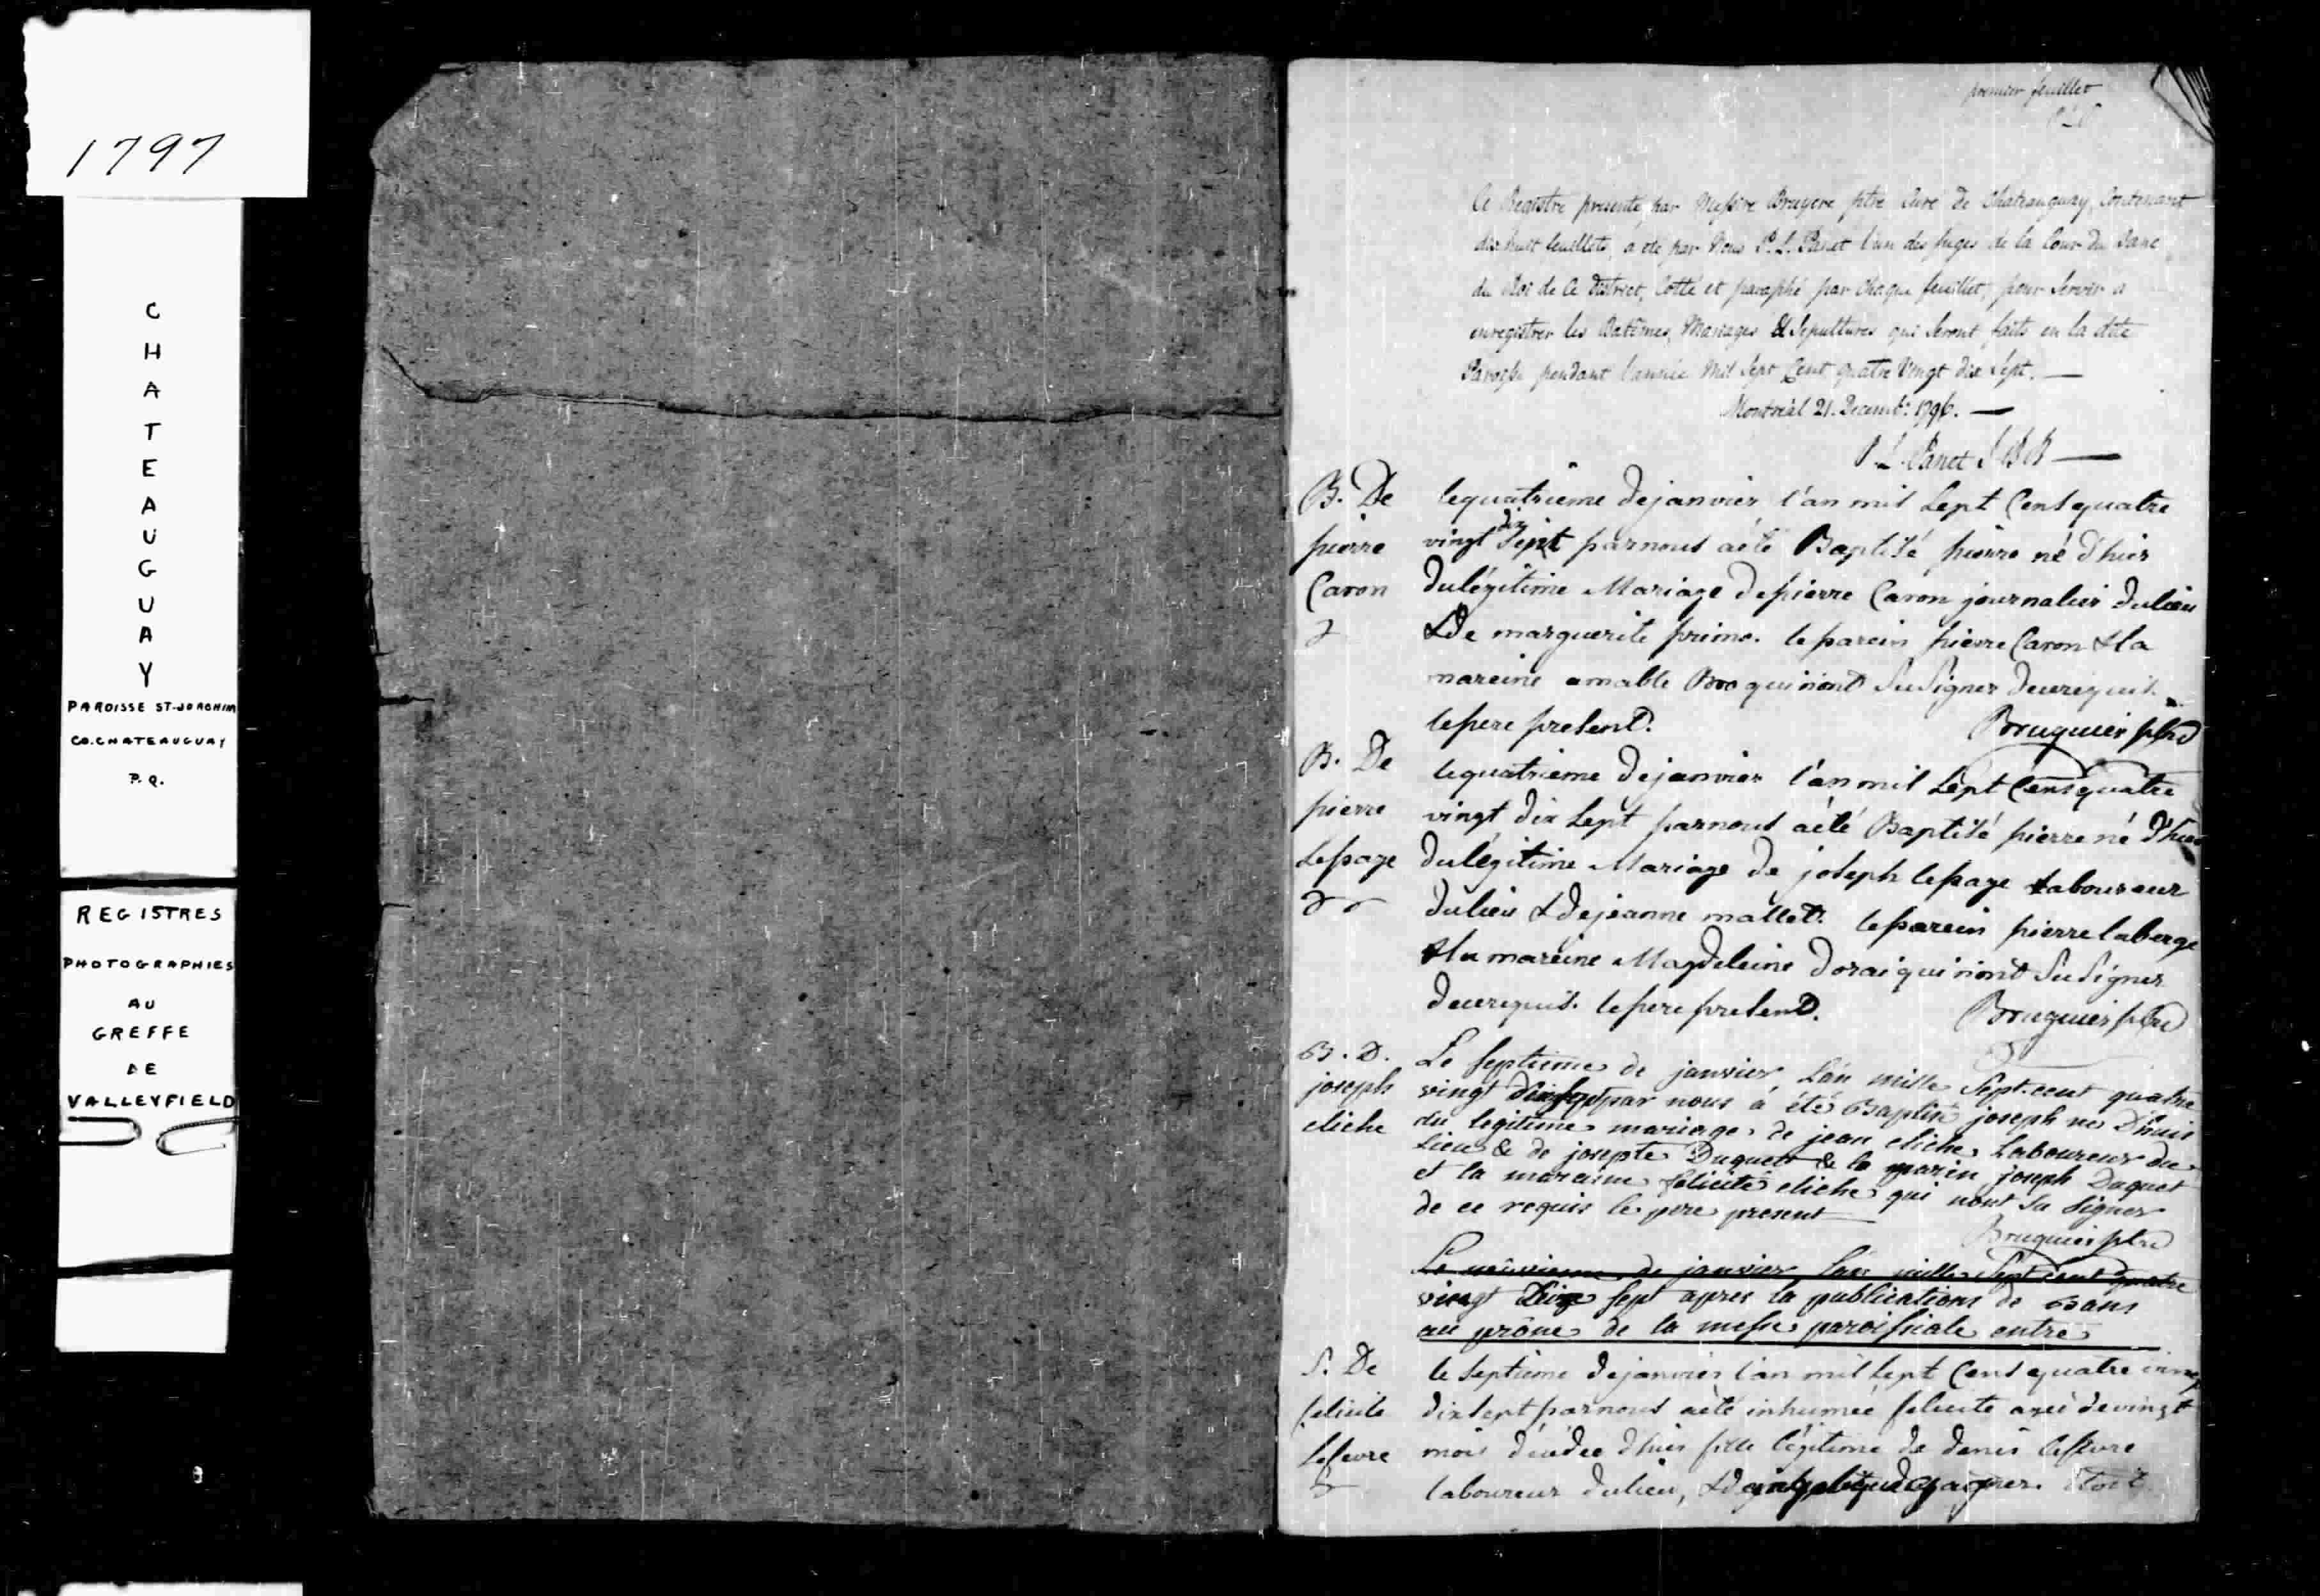 1797
CHATEAUGUAY
PAROISSE ST-JOACHIM
CO. CHATEAUGUAY
P.Q.
REGISTRES
PHOTOGRAPHIES
AU
GREFFE
DE
VALLEYFIELD
premier feuillet
Ce Registre presenté par Messire Bruyere ptre Curé de Chateauguay, Contenant
dix huit feuillets, a été par Nous P. L. Panet l'un des Juges de la Cour du Banc
du Roi de Ce District, Cotté et paraphé par Chaque feuillet, pour Servir a
enregistrer les Batêmes, Mariages & Sepultures qui Seront faits en la dite
Paroisse pendant l'année Mil Sept Cent quatre Vingt dix Sept. —
Montréal 21. Decemb: 1796. —
P. L. Panet J B R —
B. De
pierre
Caron
le quatrieme de janvier l'an mil Sept Cent quatre
vingt dix Sept par nous a été Baptisé pierre né d'hier
du légitime Mariage de pierre Caron journalier du lieu
& De marguerite primo. le parein pierre Caron & la
mareine amable qui n'ont Su Signer de ce requis.
le pere present. Bruguier ptre
B. De
pierre
Lepage
le quatrieme de janvier l'an mil Sept Cent quatre
vingt dix Sept par nous a été Baptisé pierre né d'hier
du légitime Mariage de joseph lepage Laboureur
du lieu & de jeanne mallet. le parein pierre laberge
& la mareine Magdeleine dorai qui n'ont Su Signer
de ce requis. le pere present. Bruguier ptre
B. D.
joseph
eliche
Le Septieme de janvier L'an mille Sept-cent quatre
vingt par nous a été Baptisé joseph né D'huis
du legitime mariage de jean eliche Laboureur du
Lieu & de josepte Duquet & le parin joseph Duquet
et la maraine felicité eliche qui n'ont Su Signer
de ce requis le pere present
Bruguier ptre
Le neuvieme de janvier L'an mille Sept cent quatre
vingt Sept apres la publications de Bans
au prône de la messe paroissiale entre
S. De
felicité
Lefevre
le Septieme de janvier l'an mil Sept Cent quatre vingt
dix Sept par nous a été inhumée felicité agée de vingt
mois décédée d'hier fille légitime de denis lefevre
laboureur du lieu,